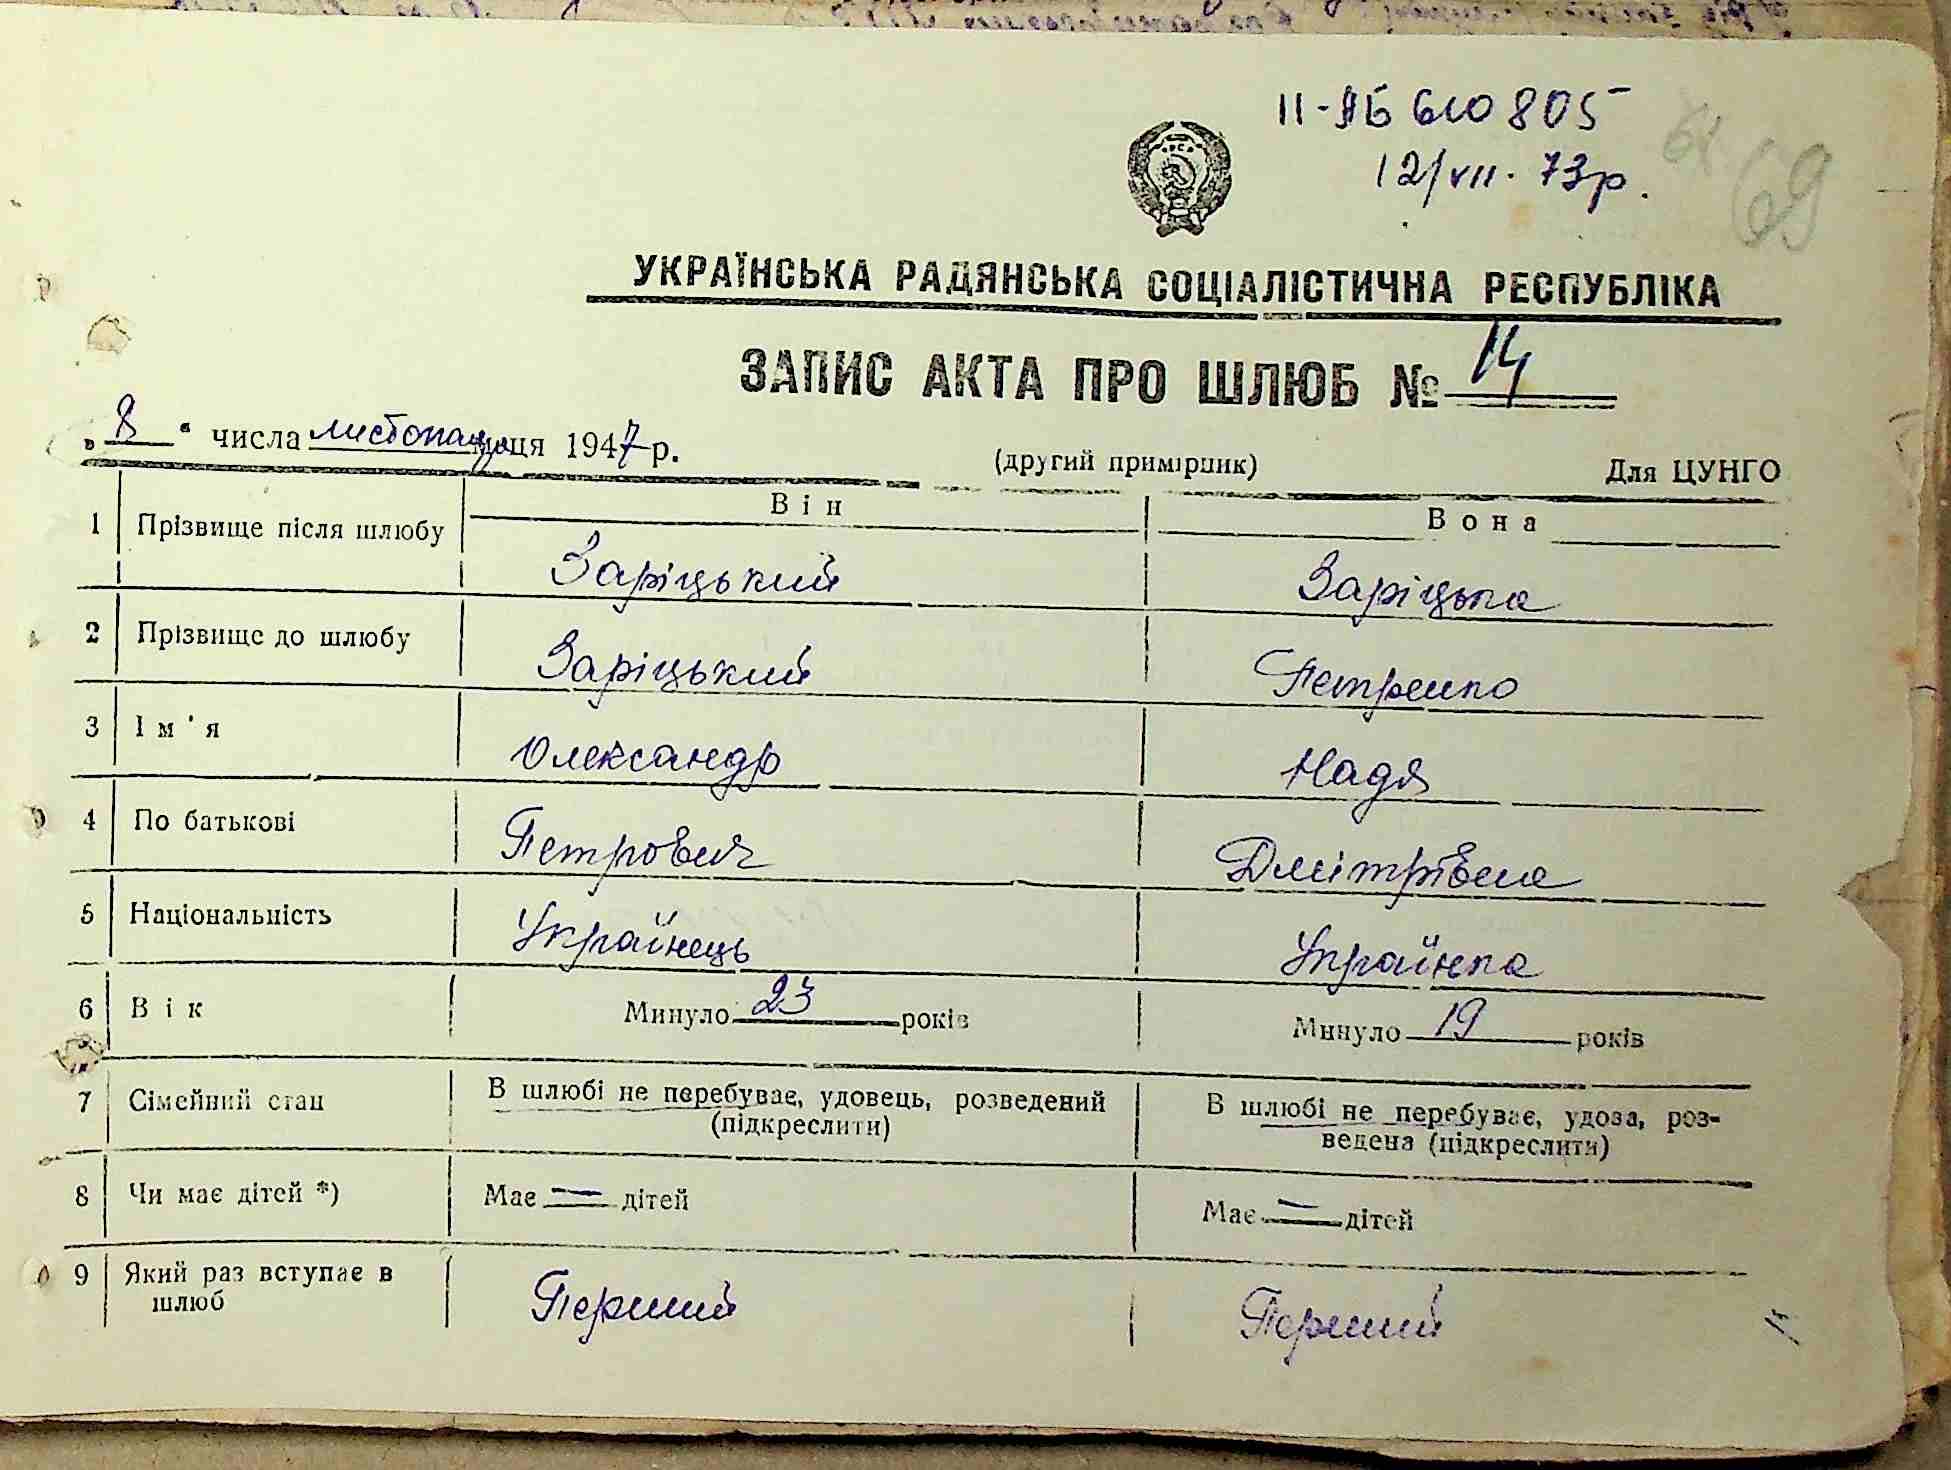 ІІ-ЯБ 610805
12/VII. 73р.
69
УКРАЇНСЬКА РАДЯНСЬКА СОЦІАЛІСТИЧНА РЕСПУБЛІКА
ЗАПИС АКТА ПРО ШЛЮБ № 14
„8“ числа листопада м-ця 1947 р. (другий примірник) Для ЦУНГО
Він Вона
1 Прізвище після шлюбу Заріцький Заріцька
2 Прізвище до шлюбу Заріцький Петренко
3 Ім'я Олександр Надя
4 По батькові Петрович Дмітрівна
5 Національність Українець Українка
6 Вік Минуло 23 років Минуло 19 років
7 Сімейний стан В шлюбі не перебуває, удовець, розведений В шлюбі не перебуває, удова, роз-
(підкреслити) ведена (підкреслити)
8 Чи має дітей *) Має — дітей Має — дітей
9 Який раз вступає в Перший Перший
шлюб